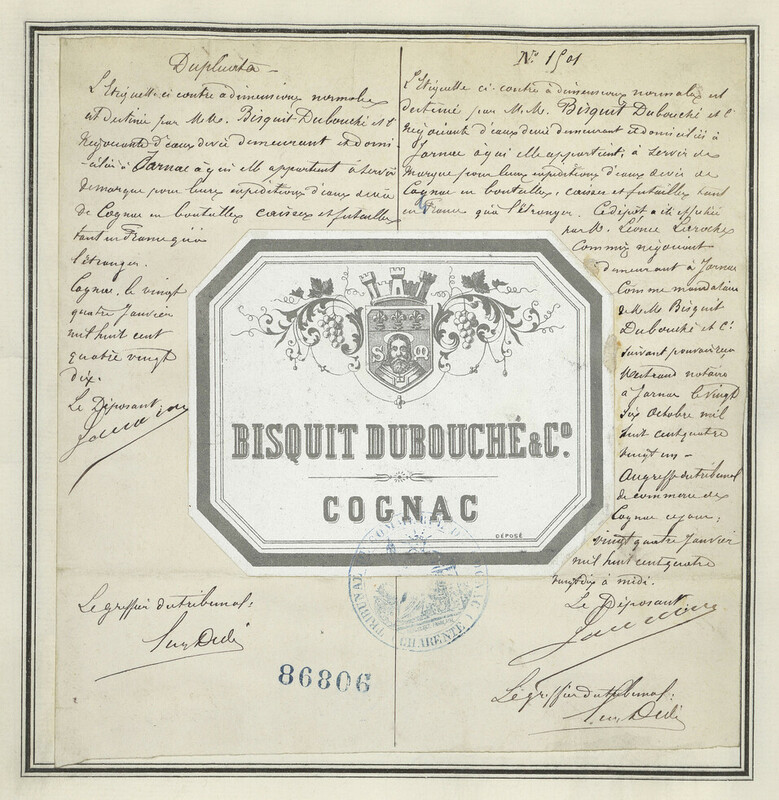 Duplicata
L'Etiquette ci contre à dimensions normales
est destinée par M.M. Bisquit-Dubouché et Cⁱᵉ
Négociants d'eaux de vie demeurant et domi-
-ciliés à Jarnac à qui elle appartient à servir
de marque pour leurs expéditions d'eaux de vie
de Cognac en bouteilles caisses et futailles
tant en France qu'à
l'étranger.
Cognac, le vingt
quatre Janvier
mil huit cent
quatre vingt
dix.
Le Déposant
Le greffier du tribunal:
86806
Nº 1501
L'Etiquette ci-contre à dimensions normales est
destinée par M.M. Bisquit Dubouché et Cⁱᵉ
Négociants d'eaux de vie demeurant et domiciliés à
Jarnac à qui elle appartient, à servir de
marque pour leurs expéditions d'eaux de vie de
Cognac en bouteilles, caisses et futailles tant
en France qu'à l'étranger. Ce dépôt a été effectué
par M. Léonce Laroche
Commis négociant
demeurant à Jarnac
Comme mandataire
de M.M. Bisquit
Dubouché et Cⁱᵉ
suivant pouvoir reçu
notaire
à Jarnac le vingt
six Octobre mil
huit cent quatre
vingt un -
Au greffe du tribunal
de commerce de
Cognac ce jour;
vingt quatre Janvier
mil huit cent quatre
vingt dix à midi.
Le Déposant
Le greffier du tribunal:
S
BISQUIT DUBOUCHÉ & Cº.
COGNAC
DÉPOSÉ
TRIBUNAL DE COMMERCE DE COGNAC
(CHARENTE)